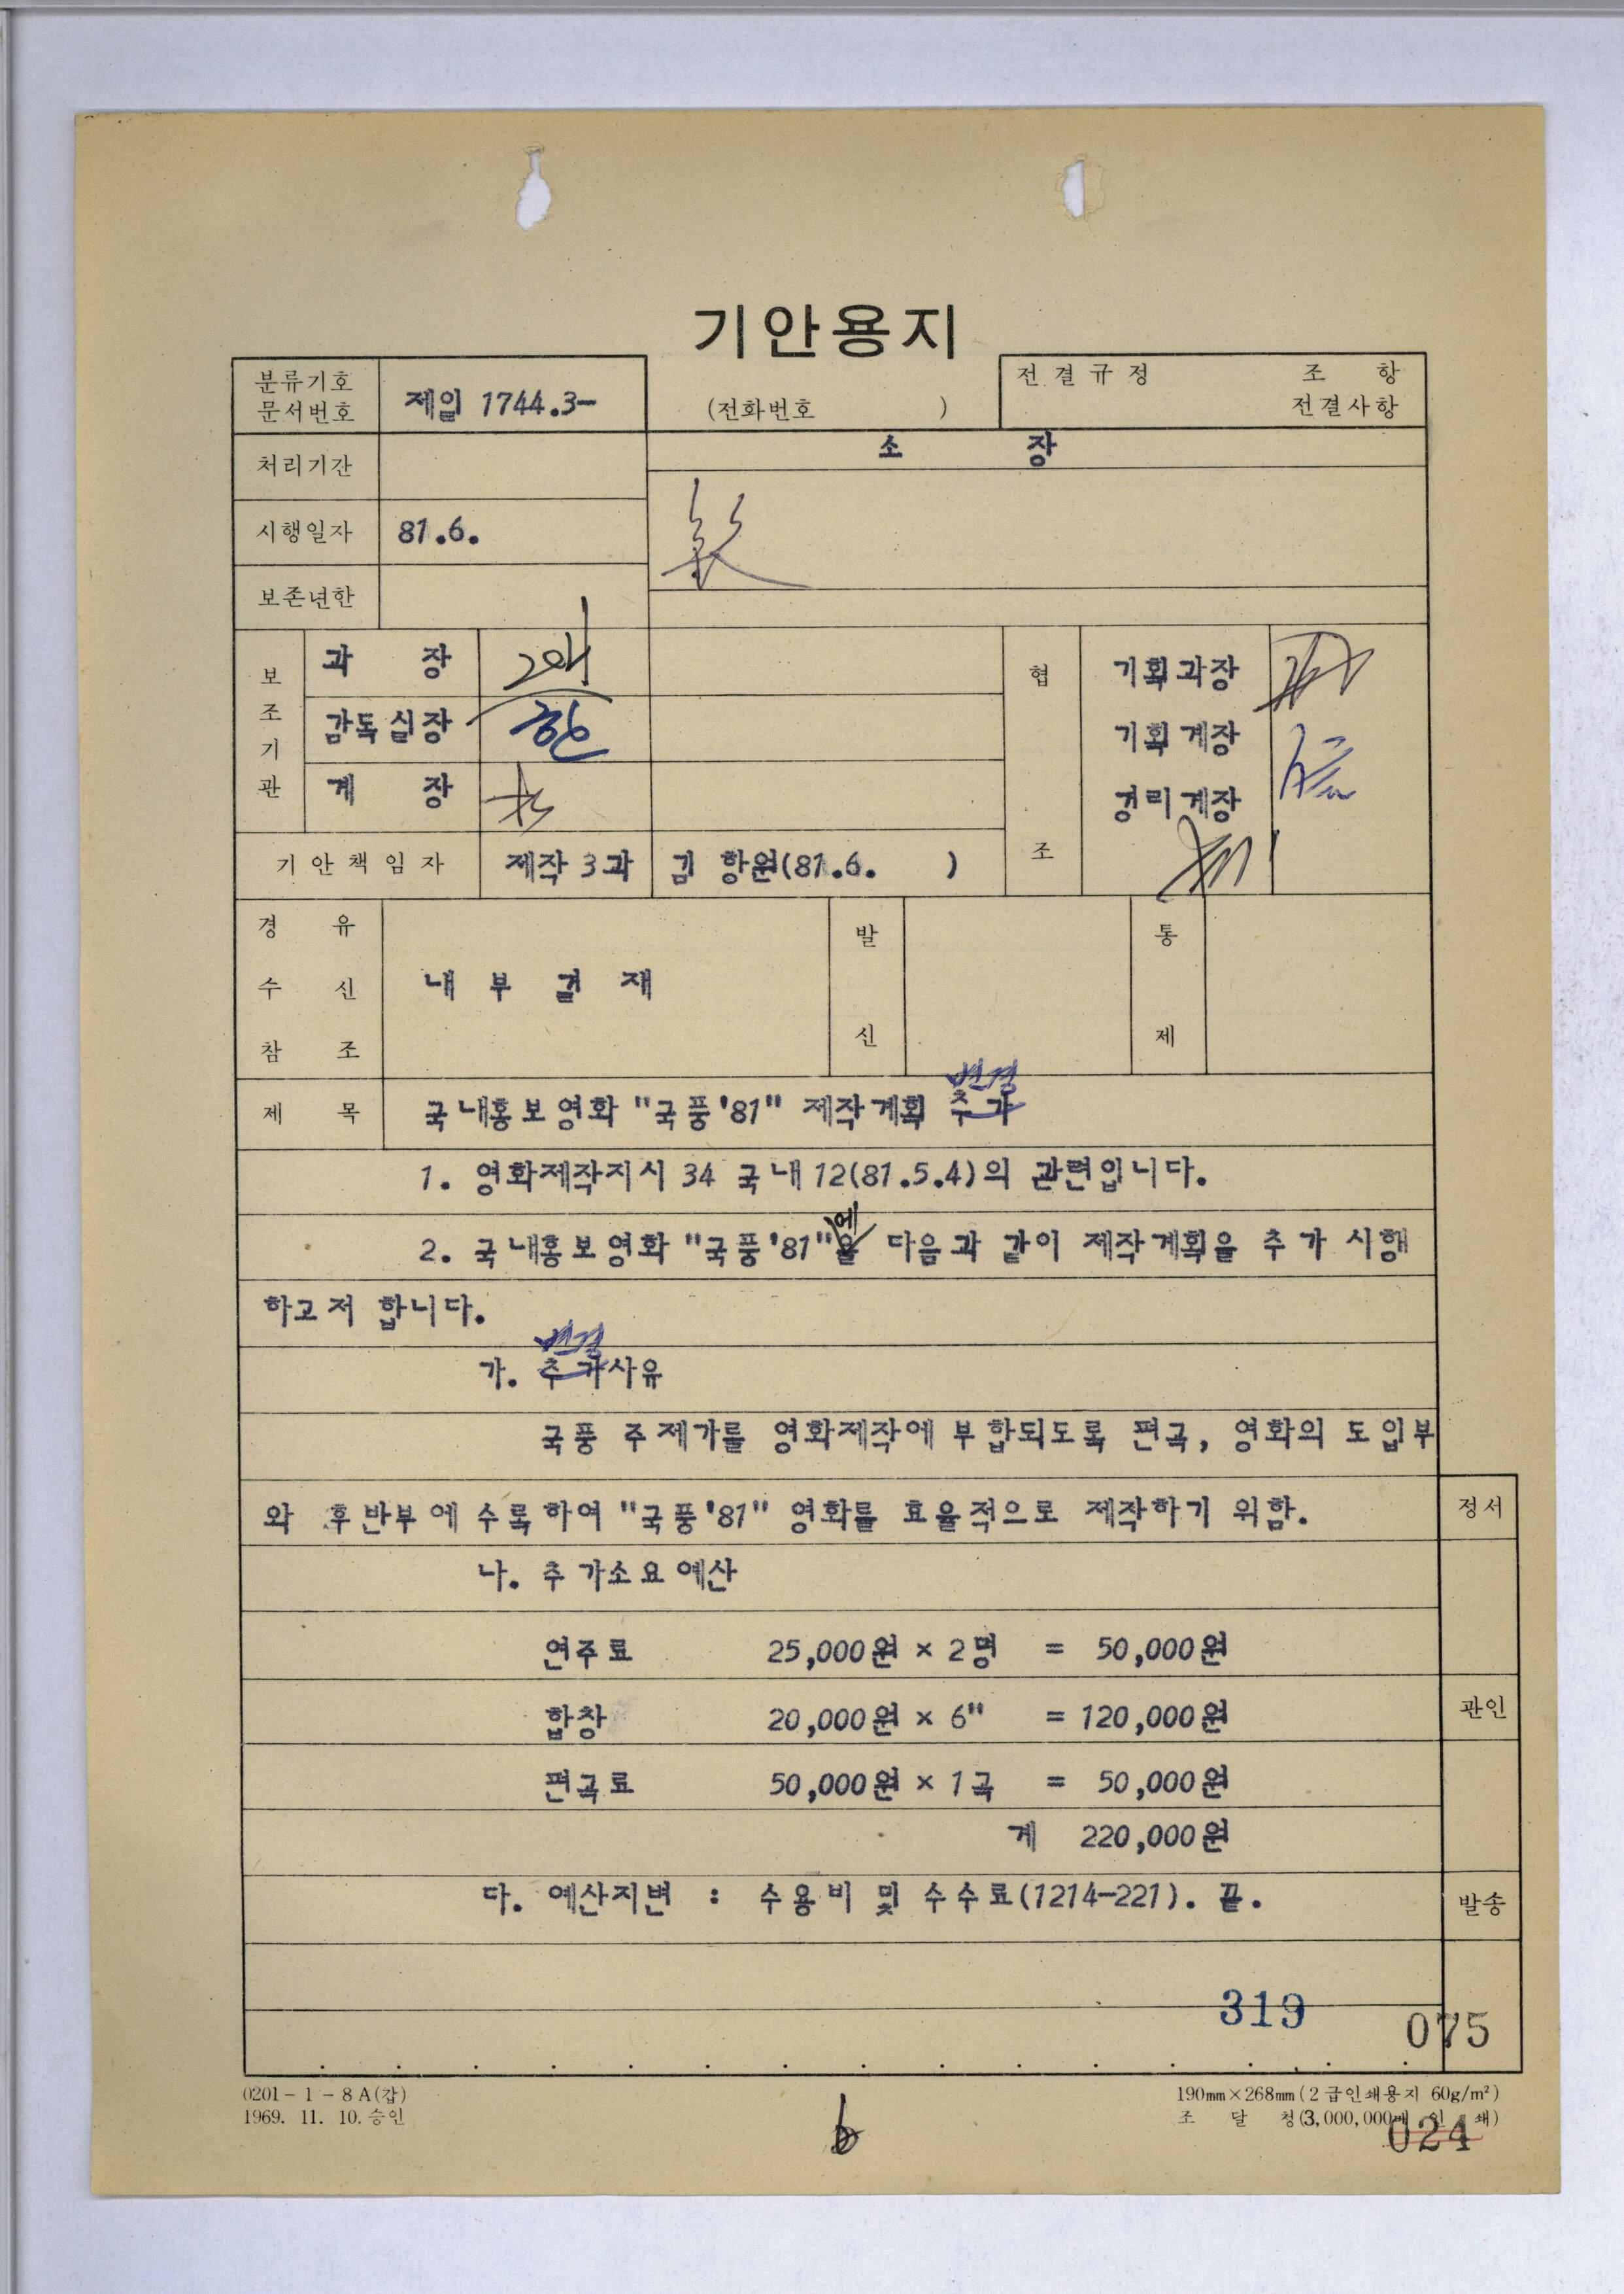 기안용지
분류기호
문서번호
제일 1744.3-
(전화번호 )
전결규정 조 항
전결사항
처리기간
소 장
시행일자 81.6.
보존년한
보조기관
과 장
감독실장
계 장
협조
기획과장
기획계장
경리계장
기안책임자 제작3과 김 항원(81.6. )
경 유
수 신
참 조
내 부 결 재
발신
통제
변경
제 목 국내홍보영화 "국풍'81" 제작계획 추가
1. 영화제작지시 34 국내12(81.5.4)의 관련입니다.
에
2. 국내홍보영화 "국풍'81"을 다음과 같이 제작계획을 추가 시행
하고저 합니다.
변경
가. 추가사유
국풍 주제가를 영화제작에 부합되도록 편곡, 영화의 도입부
와 후반부에 수록하여 "국풍'81" 영화를 효율적으로 제작하기 위함.
정서
나. 추가소요예산
연주료 25,000원 × 2명 = 50,000원
합창 20,000원 × 6" = 120,000원
관인
편곡료 50,000원 × 1곡 = 50,000원
계 220,000원
다. 예산지변 : 수용비 및 수수료(1214-221). 끝.
발송
319
075
0201-1-8A(갑)
1969. 11. 10. 승인
190mm×268mm(2급인쇄용지 60g/m²)
조 달 청(3,000,000매 인 쇄)
024
6